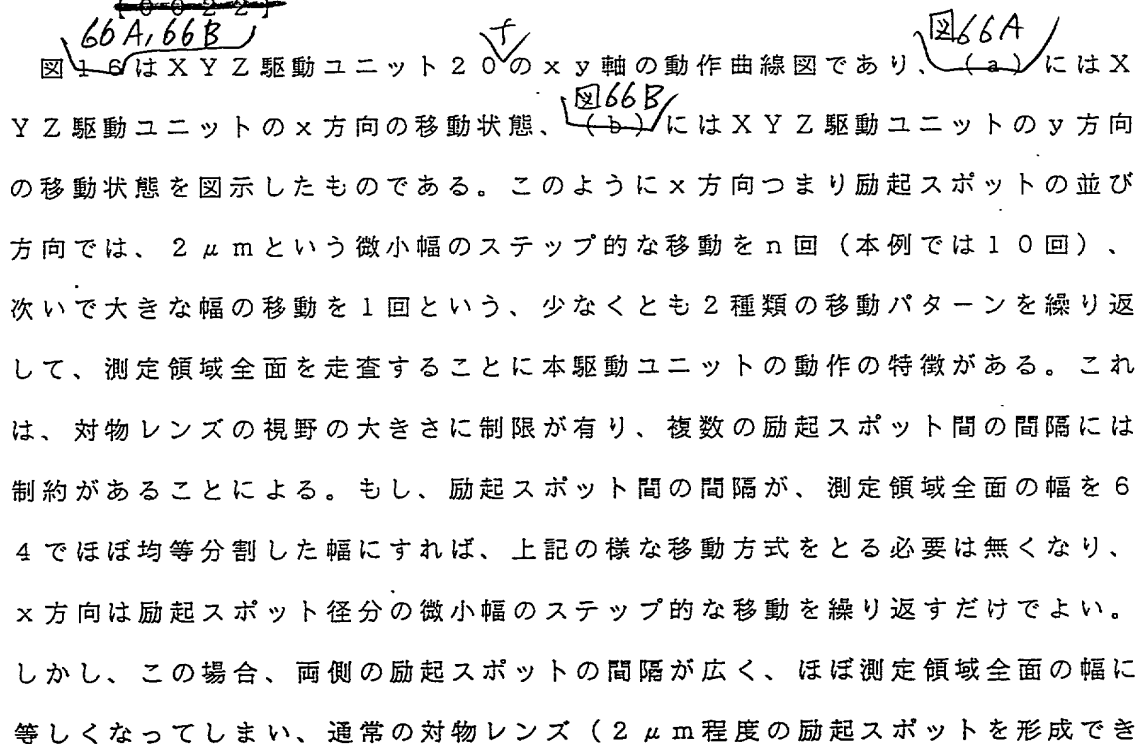 【0022】
66A,66B
図16はXYZ駆動ユニット20fのxy軸の動作曲線図であり、(a)図66AにはX
YZ駆動ユニットのx方向の移動状態、(b)図66BにはXYZ駆動ユニットのy方向
の移動状態を図示したものである。このようにx方向つまり励起スポットの並び
方向では、2μmという微小幅のステップ的な移動をn回(本例では10回)、
次いで大きな幅の移動を1回という、少なくとも2種類の移動パターンを繰り返
して、測定領域全面を走査することに本駆動ユニットの動作の特徴がある。これ
は、対物レンズの視野の大きさに制限が有り、複数の励起スポット間の間隔には
制約があることによる。もし、励起スポット間の間隔が、測定領域全面の幅を6
4でほぼ均等分割した幅にすれば、上記の様な移動方式をとる必要は無くなり、
x方向は励起スポット径分の微小幅のステップ的な移動を繰り返すだけでよい。
しかし、この場合、両側の励起スポットの間隔が広く、ほぼ測定領域全面の幅に
等しくなってしまい、通常の対物レンズ(2μm程度の励起スポットを形成でき